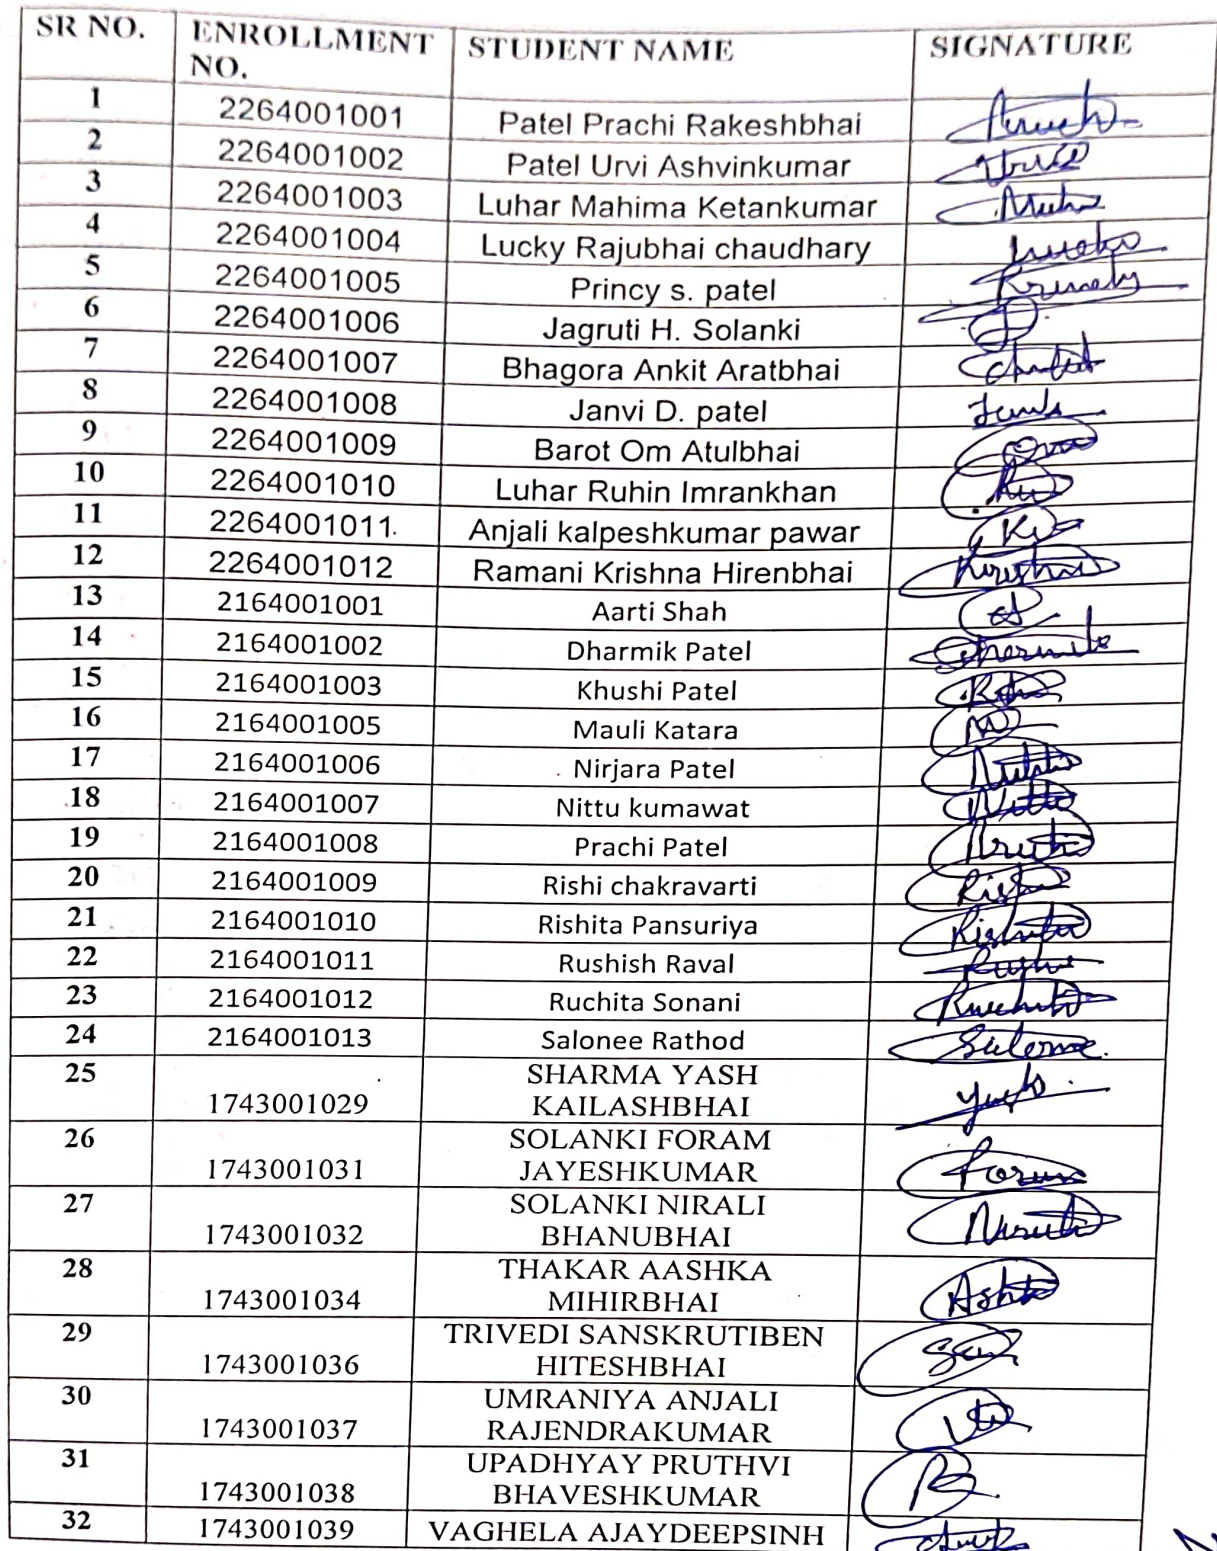 SR NO. ENROLLMENT NO. STUDENT NAME SIGNATURE
1 2264001001 Patel Prachi Rakeshbhai
2 2264001002 Patel Urvi Ashvinkumar
3 2264001003 Luhar Mahima Ketankumar
4 2264001004 Lucky Rajubhai chaudhary
5 2264001005 Princy s. patel
6 2264001006 Jagruti H. Solanki
7 2264001007 Bhagora Ankit Aratbhai
8 2264001008 Janvi D. patel
9 2264001009 Barot Om Atulbhai
10 2264001010 Luhar Ruhin Imrankhan
11 2264001011 Anjali kalpeshkumar pawar
12 2264001012 Ramani Krishna Hirenbhai
13 2164001001 Aarti Shah
14 2164001002 Dharmik Patel
15 2164001003 Khushi Patel
16 2164001005 Mauli Katara
17 2164001006 Nirjara Patel
18 2164001007 Nittu kumawat
19 2164001008 Prachi Patel
20 2164001009 Rishi chakravarti
21 2164001010 Rishita Pansuriya
22 2164001011 Rushish Raval
23 2164001012 Ruchita Sonani
24 2164001013 Salonee Rathod
25 SHARMA YASH
1743001029 KAILASHBHAI
26 SOLANKI FORAM
1743001031 JAYESHKUMAR
27 SOLANKI NIRALI
1743001032 BHANUBHAI
28 THAKAR AASHKA
1743001034 MIHIRBHAI
29 TRIVEDI SANSKRUTIBEN
1743001036 HITESHBHAI
30 UMRANIYA ANJALI
1743001037 RAJENDRAKUMAR
31 UPADHYAY PRUTHVI
1743001038 BHAVESHKUMAR
32 1743001039 VAGHELA AJAYDEEPSINH